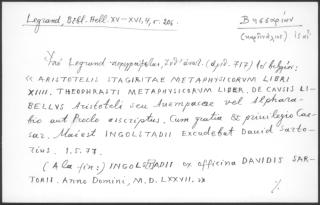 Legrand, Bibl. Hell. XV-XVI, 4, σ. 206.
Βησσαρίων
(καρδινάλιος) 15 αἰ.
Ὑπὸ Legrand περιγράφεται, (ἀριθ. 717) τὸ βιβλίον:
« ARISTOTELIS STAGIRITAE METAPHYSICORUM LIBRI
XIIII. THEOPHRASTI METAPHYSICORUM LIBER. DE CAUSIS LI-
BELLUS Aristoteli seu Auempacae vel Alphara-
bio aut Proclo adscriptus. Cum gratia & privilegio Cae-
sar. Maiest INGOLSTADII Excudebat David Sarto-
rius. 1.5.77.
(A la fin:) INGOLSTADII ex officina DAVIDIS SAR-
TORII. Anno Domini, M.D.LXXVII. »
%